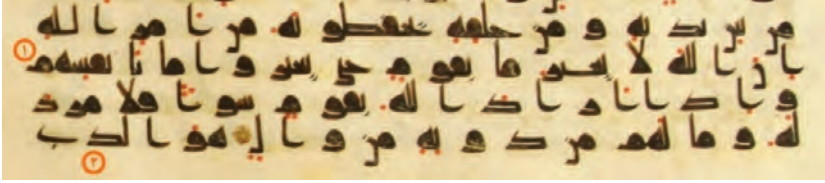 من بين يديه و من خلفه يحفظونه من امر الله
١ ان الله لا يغير ما بقوم حتى يغيروا ما بانفسهم
و اذا اراد الله بقوم سوا فلا مرد
له و ما لهم من دونه من وال هو الذي
٢